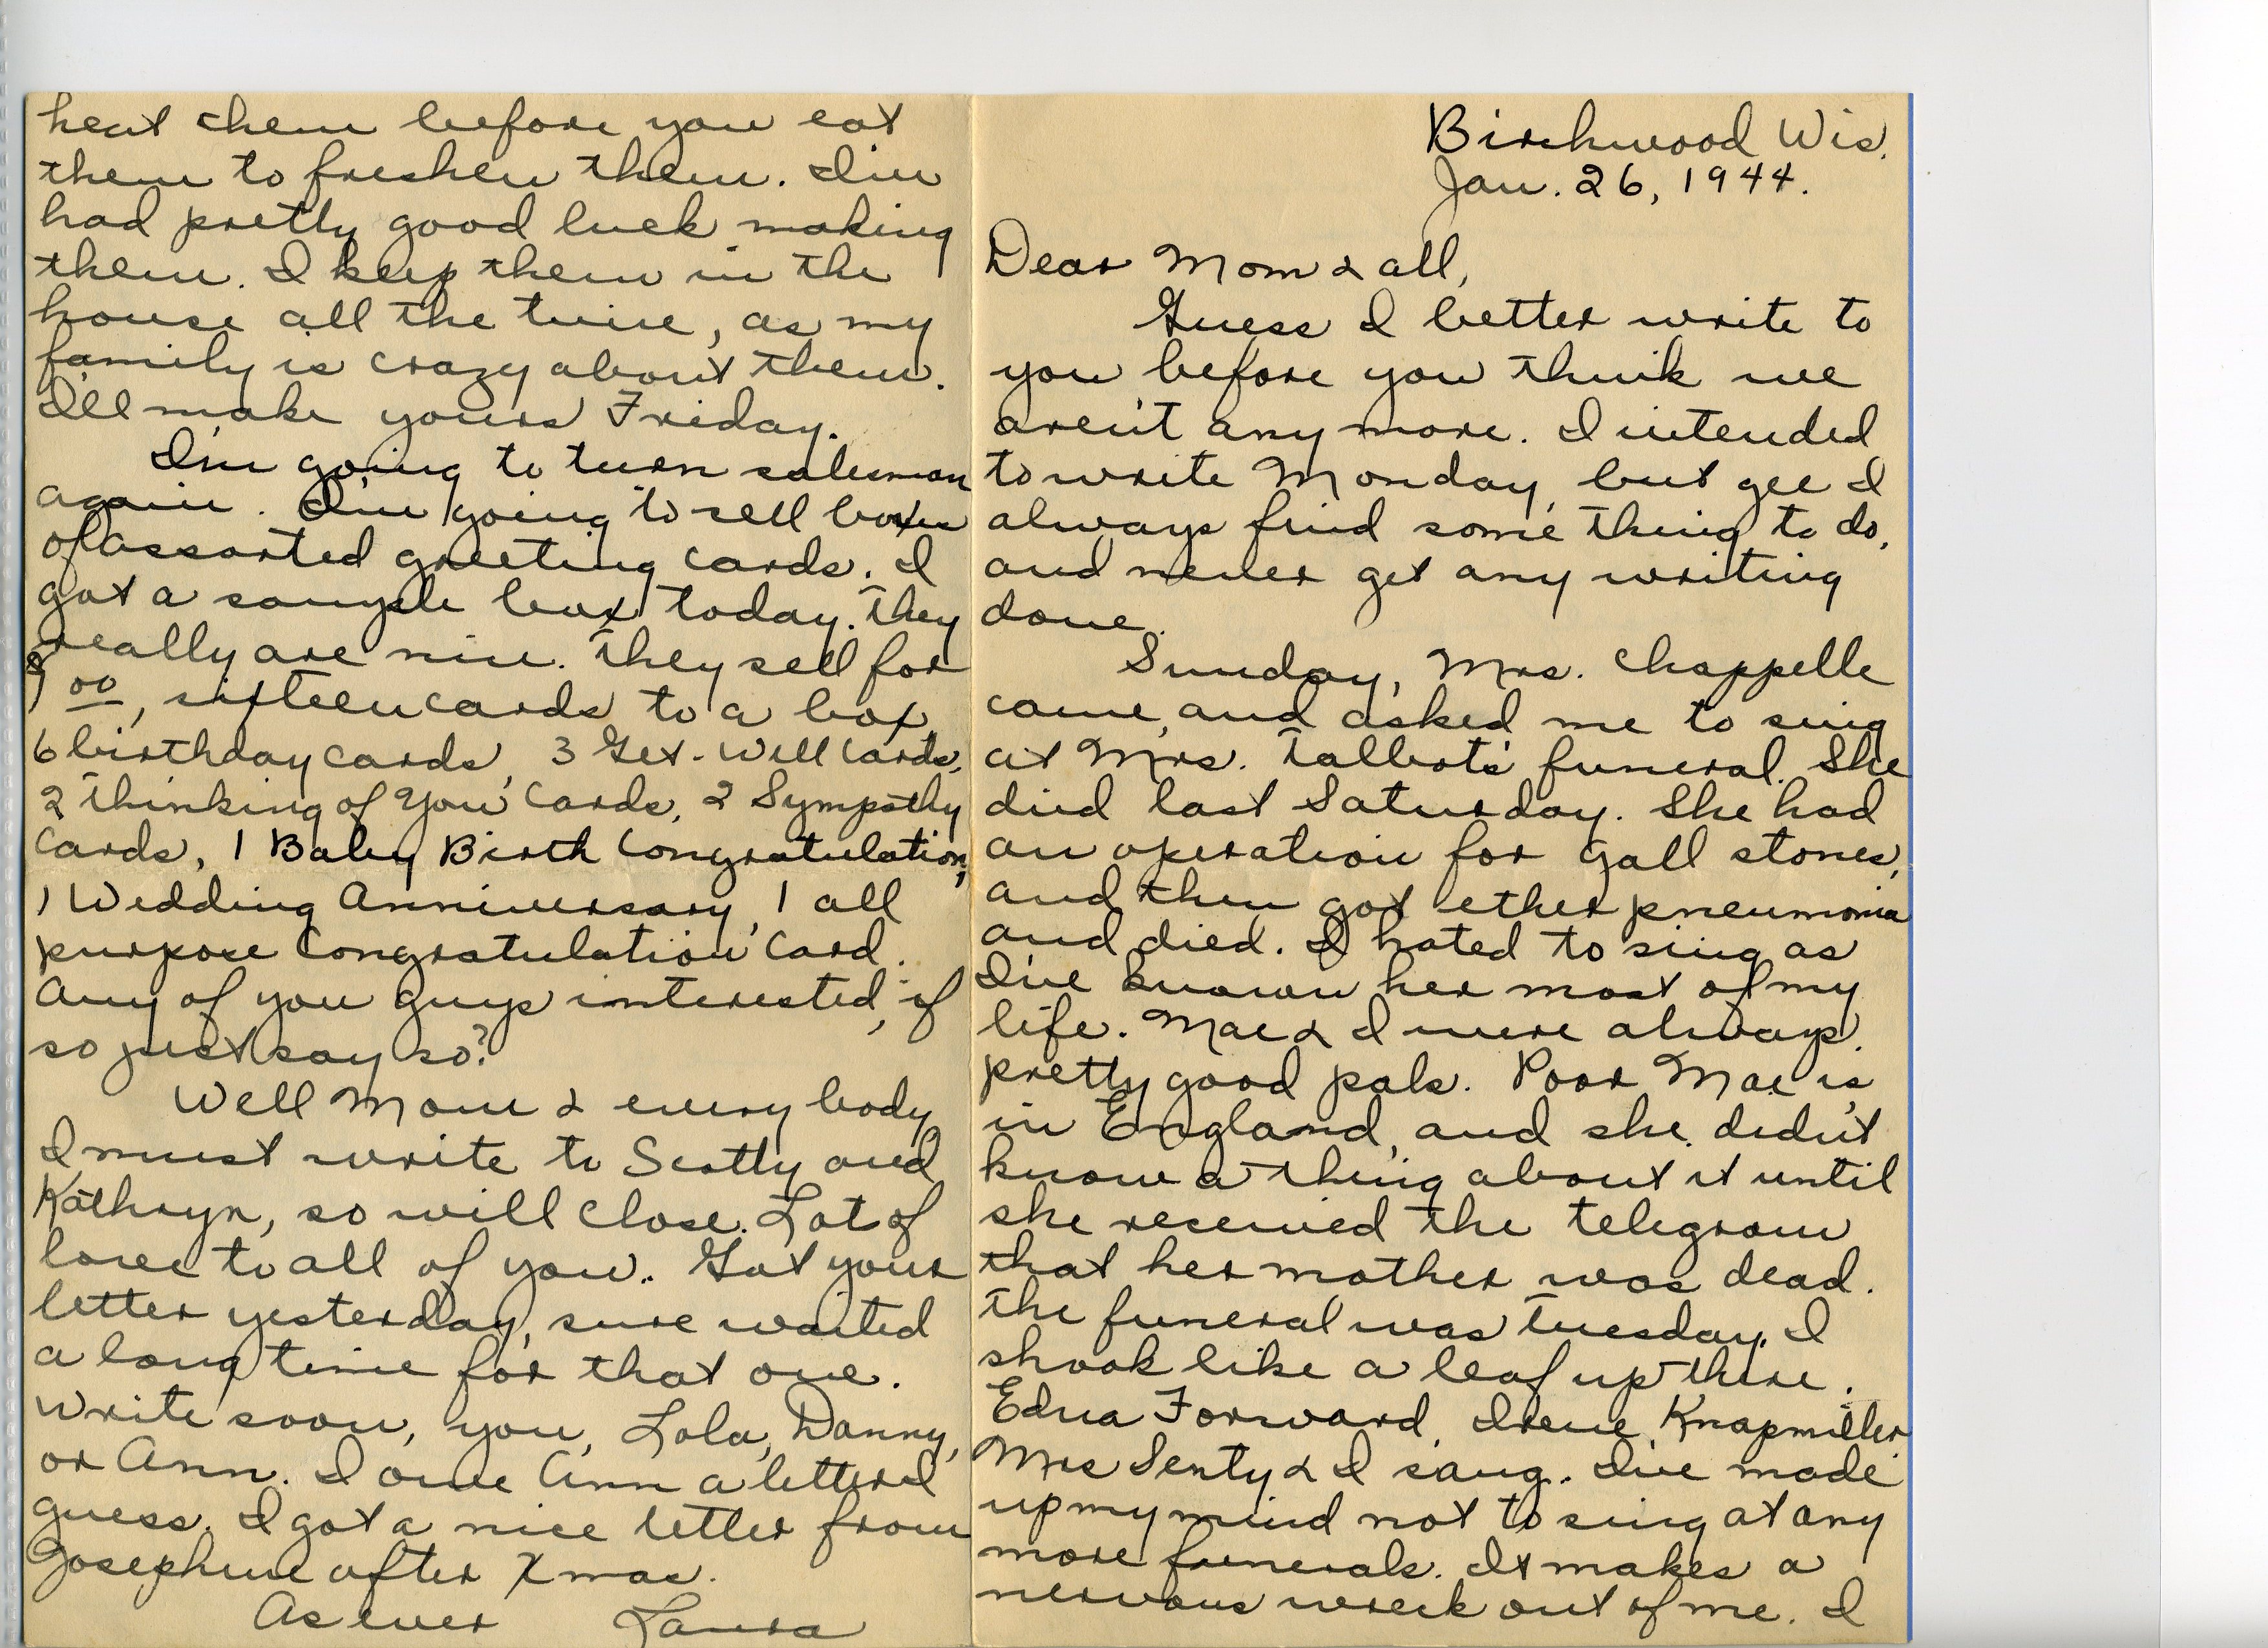 Birchwood Wis.
Jan. 26, 1944.
Dear Mom & all,
Guess I better write to
you before you think we
aren't any more. I intended
to write Monday, but gee I
always find some thing to do,
and never get any writing
done.
Sunday, Mrs. Chappelle
came, and asked me to sing
at Mrs. Talbots' funeral. She
died last Saturday. She had
an operation for gall stones,
and then got ether pneumonia
and died. I hated to sing as
I've known her most of my
life. Mae & I were always
pretty good pals. Poor Mae is
in England, and she didn't
know a thing about it until
she received the telegram
that her mother was dead.
The funeral was Tuesday. I
shook like a leaf up there.
Edna Forward, Irene Knapmiller
Mrs Senty & I sang. I've made
up my mind not to sing at any
more funerals. It makes a
nervous wreck out of me. I
heat them before you eat
them to freshen them. I've
had pretty good luck making
them. I keep them in the
house all the time, as my
family is crazy about them.
I'll make yours Friday.
I'm going to turn salesman
again. I'm going to sell boxes
of assorted greeting cards. I
got a sample box today. They
really are nice. They sell for
$1.00, sixteen cards to a box,
6 birthday cards, 3 Get-Well Cards,
2 Thinking of You Cards, 2 Sympathy
Cards, 1 Baby Birth Congratulation,
1 Wedding Anniversary, 1 all
purpose Congratulation Card.
Any of you guys interested, if
so just say so?
Well Mom & every body
I must write to Scotty and
Kathryn, so will close. Lot of
love to all of you. Got your
letter yesterday, sure waited
a long time for that one.
Write soon, you, Lola, Danny,
or Ann. I owe Ann a letter I
guess. I got a nice letter from
Josephine after Xmas.
As ever Laura